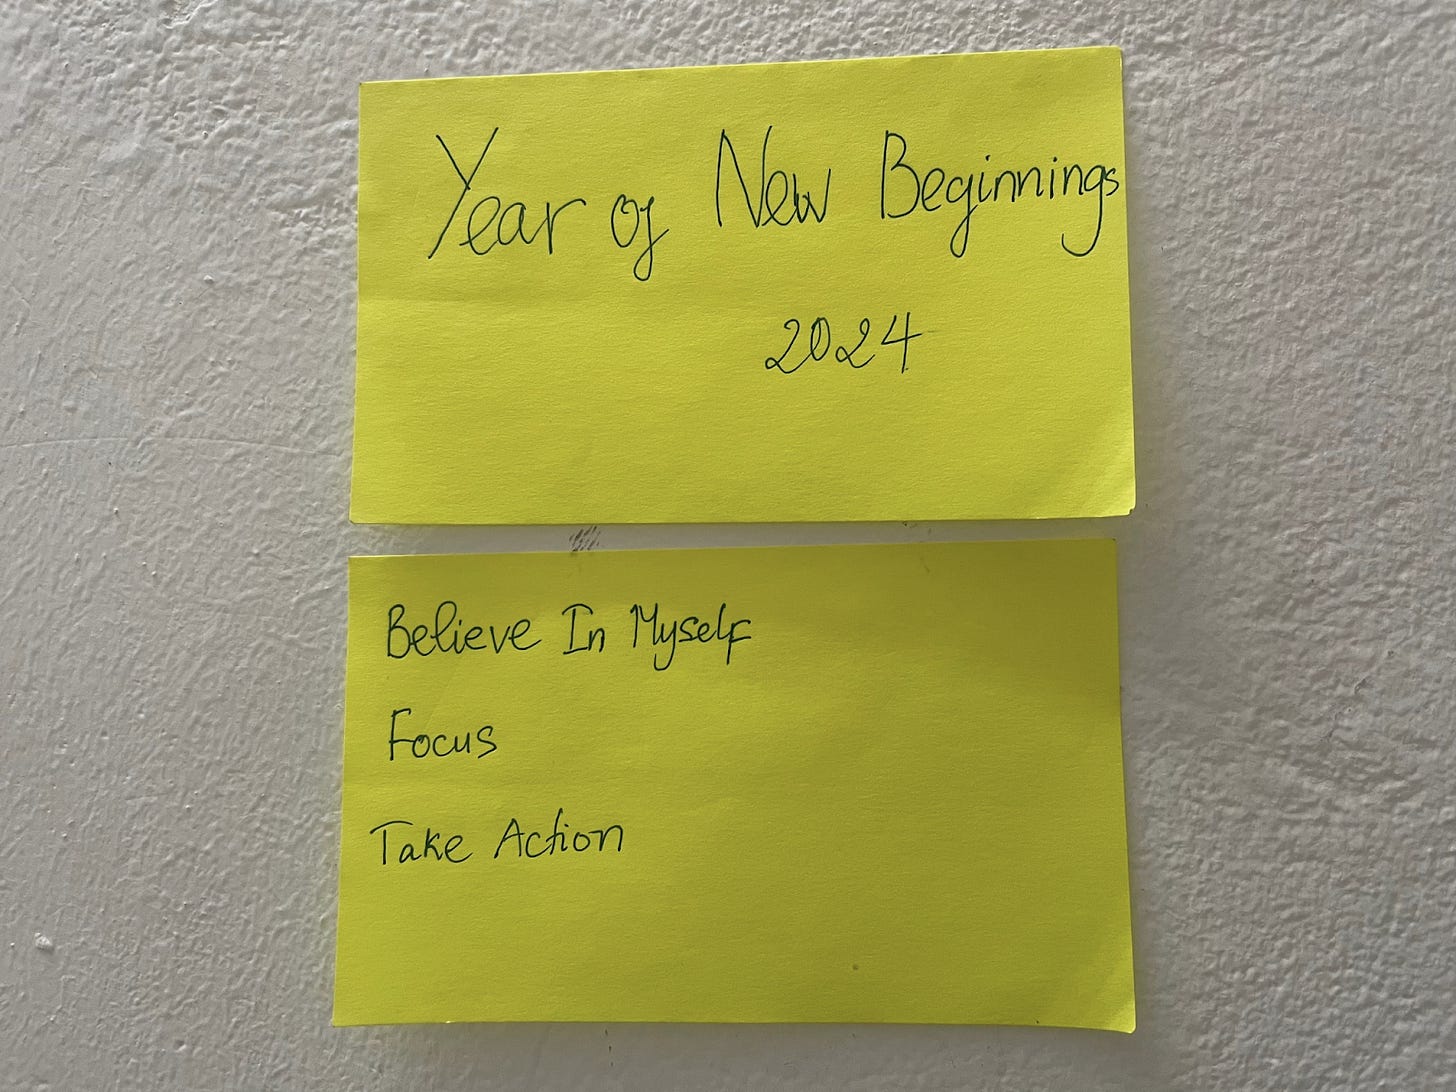 Year of New Beginnings
2024
Believe In Myself
Focus
Take Action